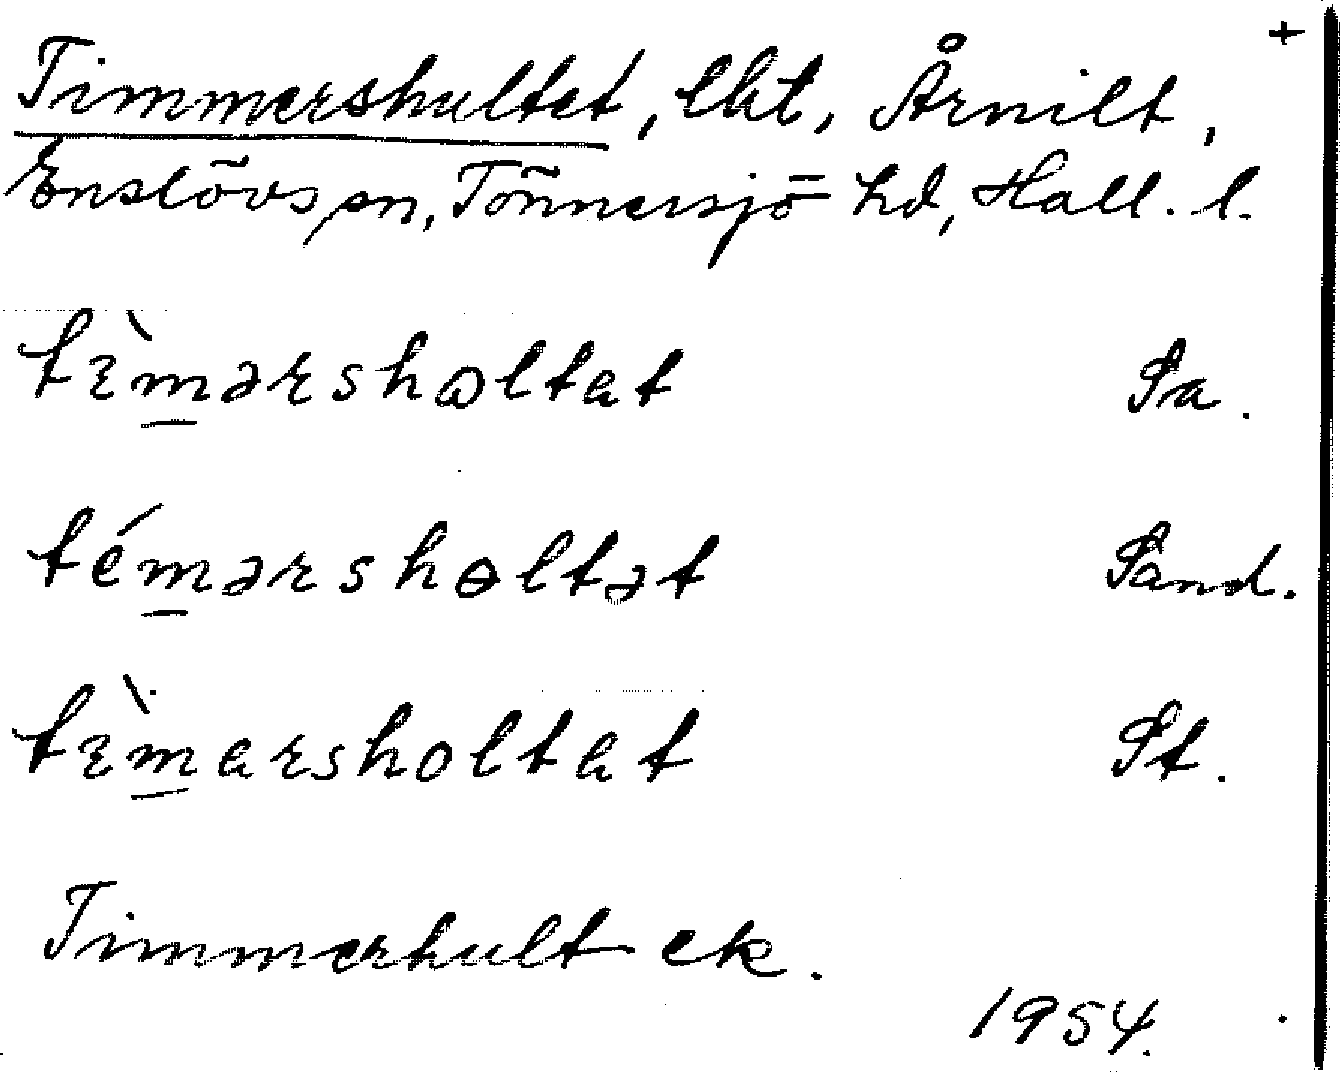 +
Timmershultet, lht, Årnilt,
Enslövs sn, Tönnersjö hd, Hall. l.
tɛ̀mərshɷltat Sa.
témərshɵltət Sand.
tɛ̀marsholtat St.
Timmerhult ek.
1954.